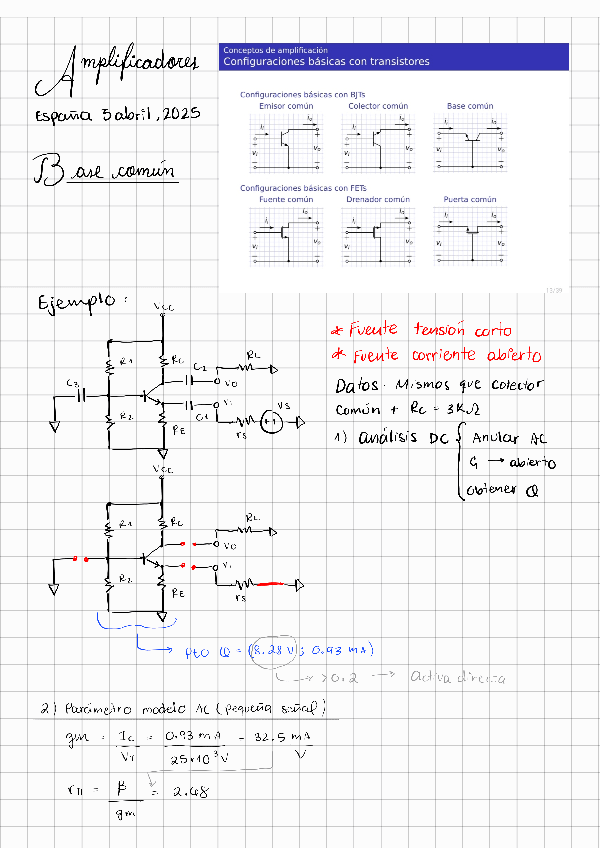 Amplificadores
España 5 abril, 2025
Base común
Conceptos de amplificación
Configuraciones básicas con transistores
Configuraciones básicas con BJTs
Emisor común Colector común Base común
ii io ii io ii io
+ + + + + +
vi vo vi vo vi vo
- - - - - -
Configuraciones básicas con FETs
Fuente común Drenador común Puerta común
ii io ii io ii io
+ + + + + +
vi vo vi vo vi vo
- - - - - -
13/39
Ejemplo:
* Fuente tensión corto
* Fuente corriente abierto
Datos. Mismos que colector
común + Rc = 3KΩ
1) análisis DC { Anular AC
Ci → abierto
obtener Q
VCC
R1 RC C2 RL
C3 VO
Vi VS
R2 C1
RE rs
VCC
R1 RC RL
VO
Vi
R2 RE rs
PtO Q = (8.28 V; 0.93 mA)
→ >0.2 → Activa directa
2) Parámetro modelo AC (pequeña señal)
gm = Ic = 0.93 mA = 32.5 mA
VT 25×10³ V V
rπ = β = 2.48
gm